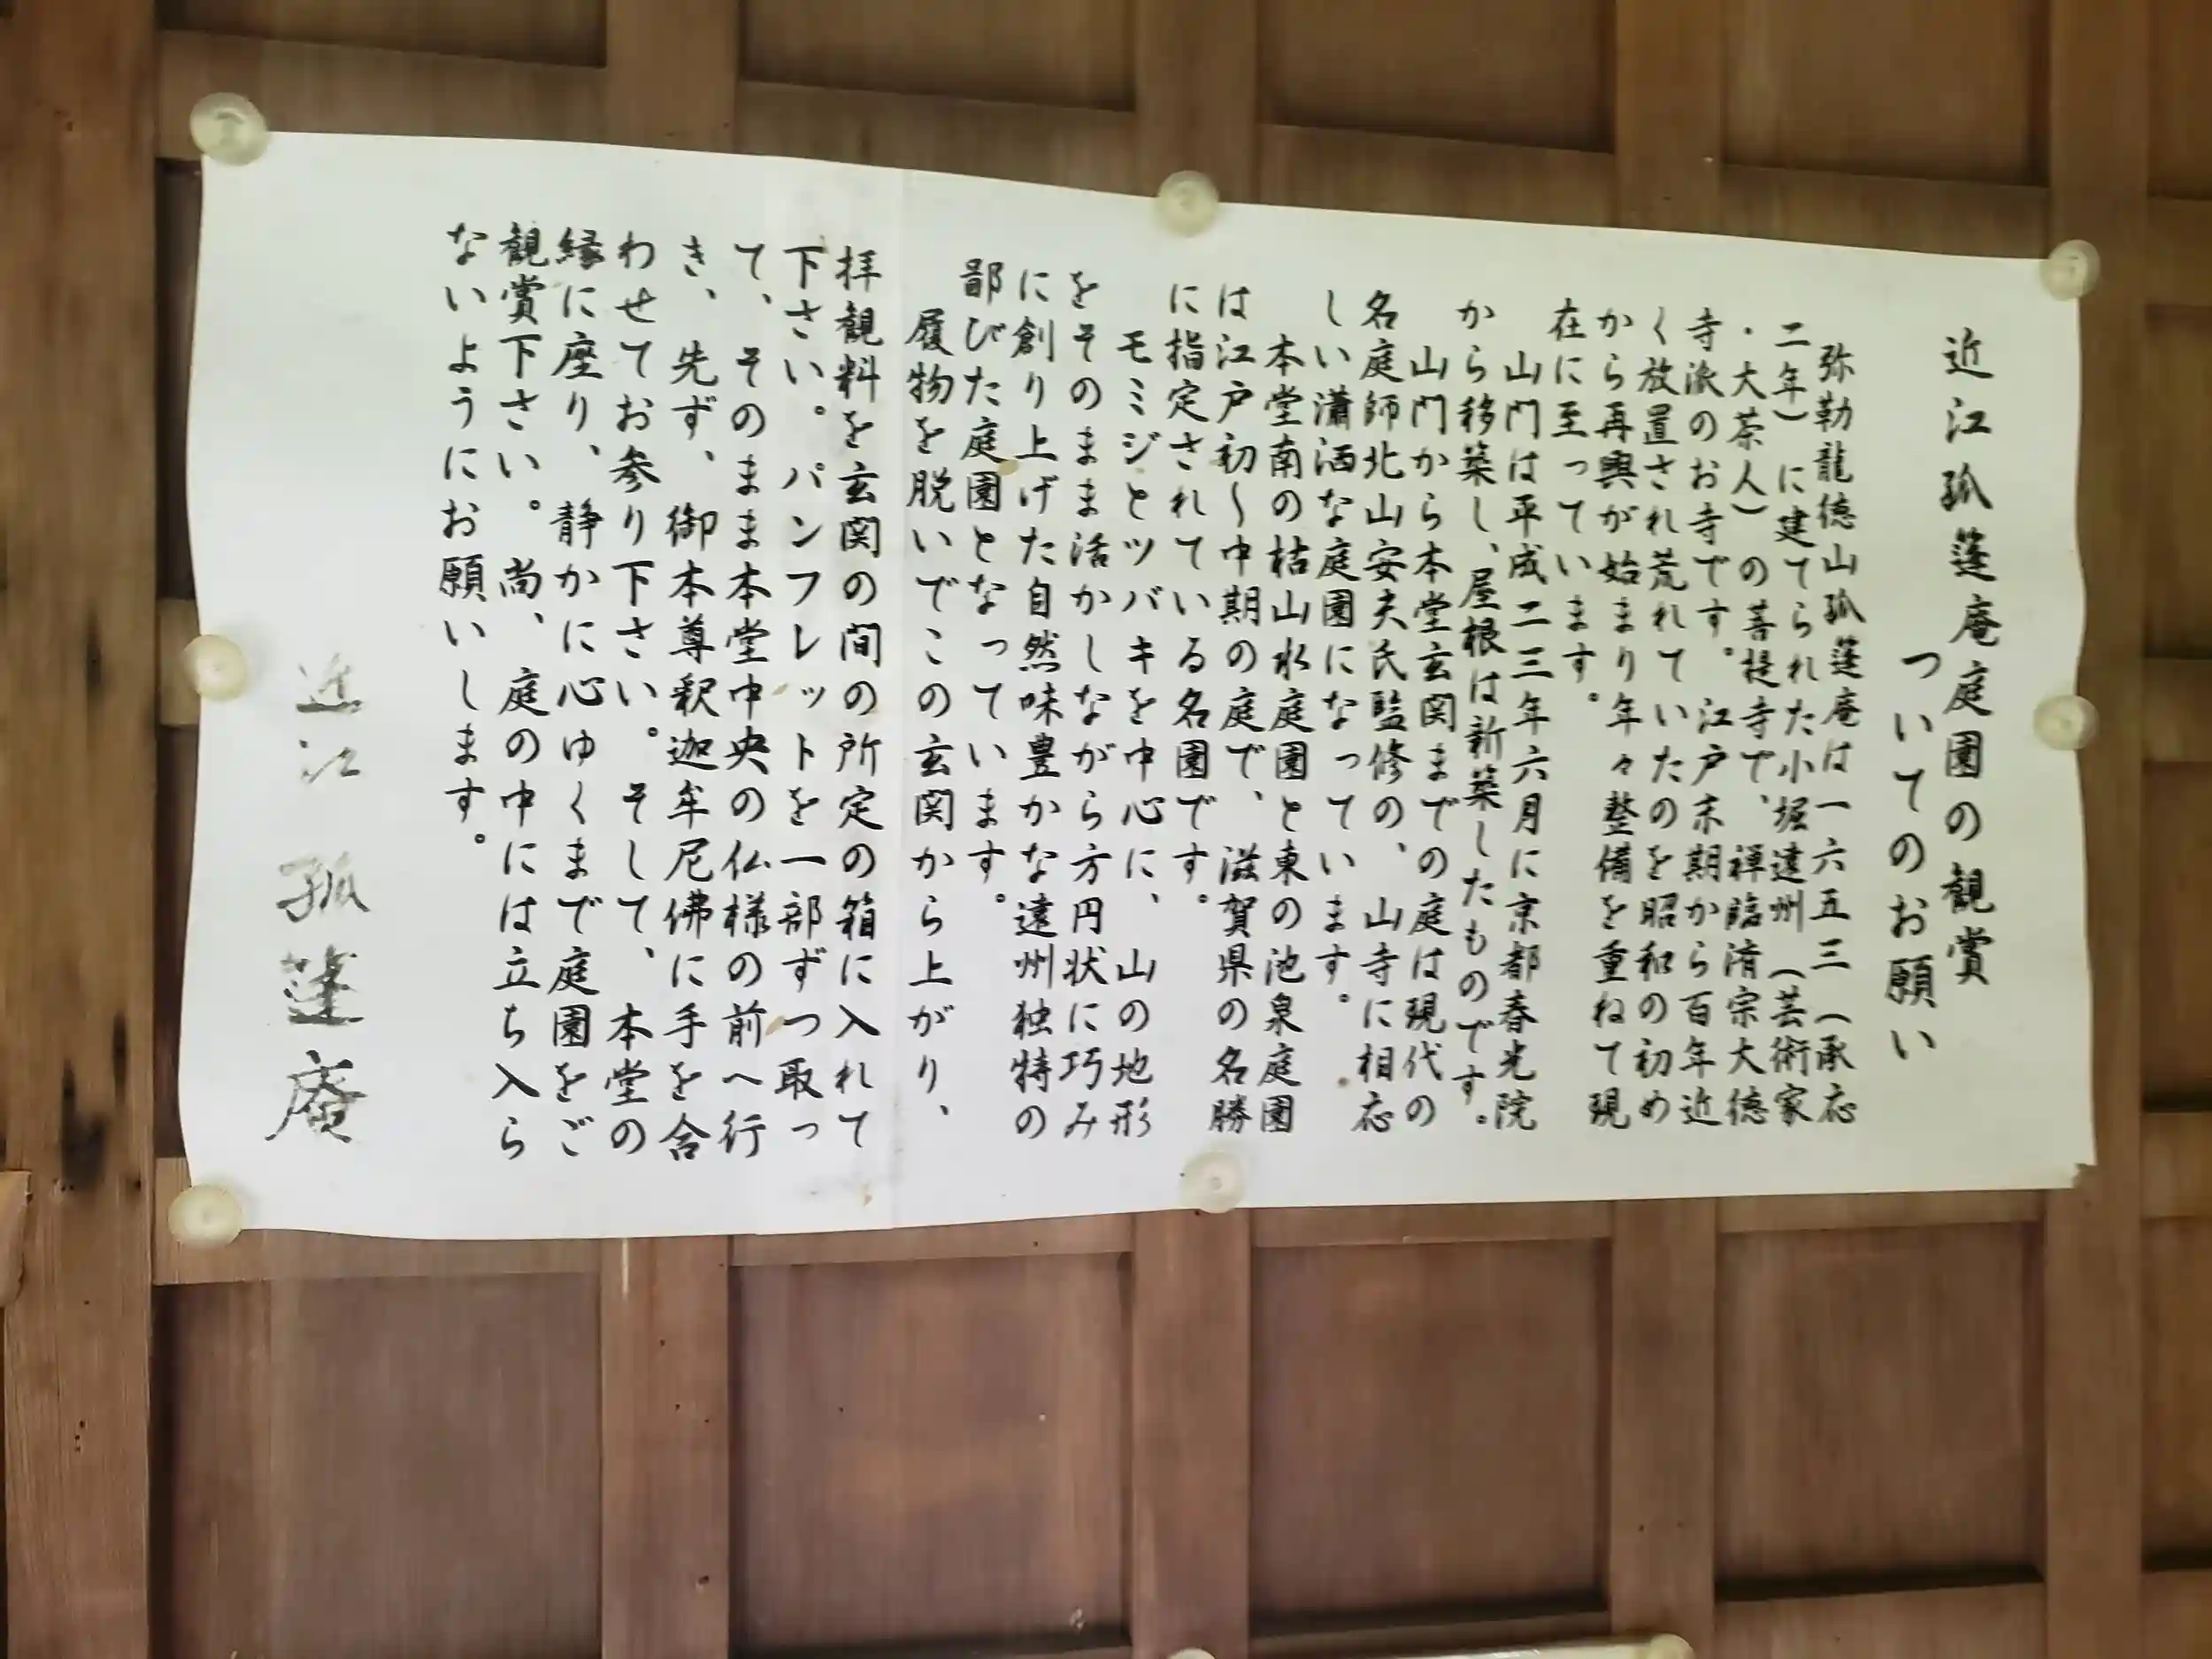 近江孤篷庵庭園の観賞
ついてのお願い
弥勒龍徳山孤篷庵は一六五三（承応
二年）に建てられた小堀遠州（芸術家
・大茶人）の菩提寺で、禅臨済宗大徳
寺派のお寺です。江戸末期から百年近
く放置され荒れていたのを昭和の初め
から再興が始まり年々整備を重ねて現
在に至っています。
山門は平成二三年六月に京都春光院
から移築し、屋根は新築したものです。
山門から本堂玄関までの庭は現代の
名庭師北山安夫氏監修の、山寺に相応
しい瀟洒な庭園になっています。
本堂南の枯山水庭園と東の池泉庭園
は江戸初〜中期の庭で、滋賀県の名勝
に指定されている名園です。
モミジとツバキを中心に、山の地形
をそのまま活かしながら方円状に巧み
に創り上げた自然味豊かな遠州独特の
鄙びた庭園となっています。
履物を脱いでこの玄関から上がり、
拝観料を玄関の間の所定の箱に入れて
下さい。パンフレットを一部ずつ取っ
て、そのまま本堂中央の仏様の前へ行
き、先ず、御本尊釈迦牟尼佛に手を合
わせてお参り下さい。そして、本堂の
縁に座り、静かに心ゆくまで庭園をご
観賞下さい。尚、庭の中には立ち入ら
ないようにお願いします。
近江孤篷庵